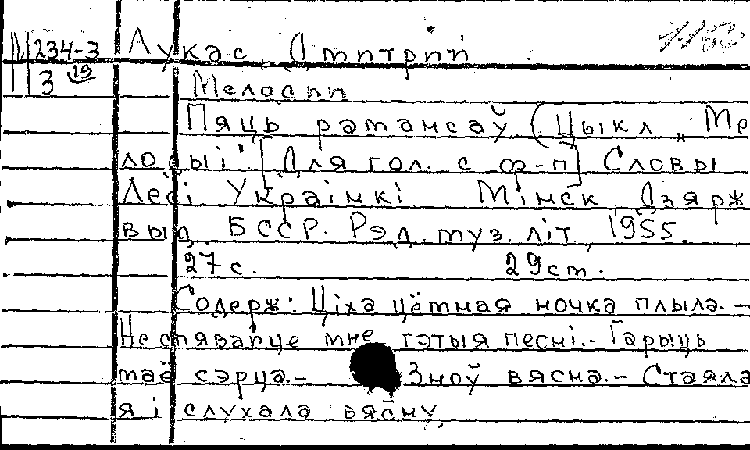 234-3 Лукас Дмитрий
3 19
Мелодии
Пяць рамансаў (Цыкл „Ме
лодыі" [Для гол. с ф-п] Словы
Лесі Украінкі Мінск Дзярж
выд. БССР. Рэд. муз. літ, 1955.
27 с. 29 cm.
Содерж: Ціха цёмная ночка плыла. –
Не спявайце мне гэтыя песні. – Гарыць
маё сэрца. – Зноў вясна. – Стаяла
я і слухала вясну